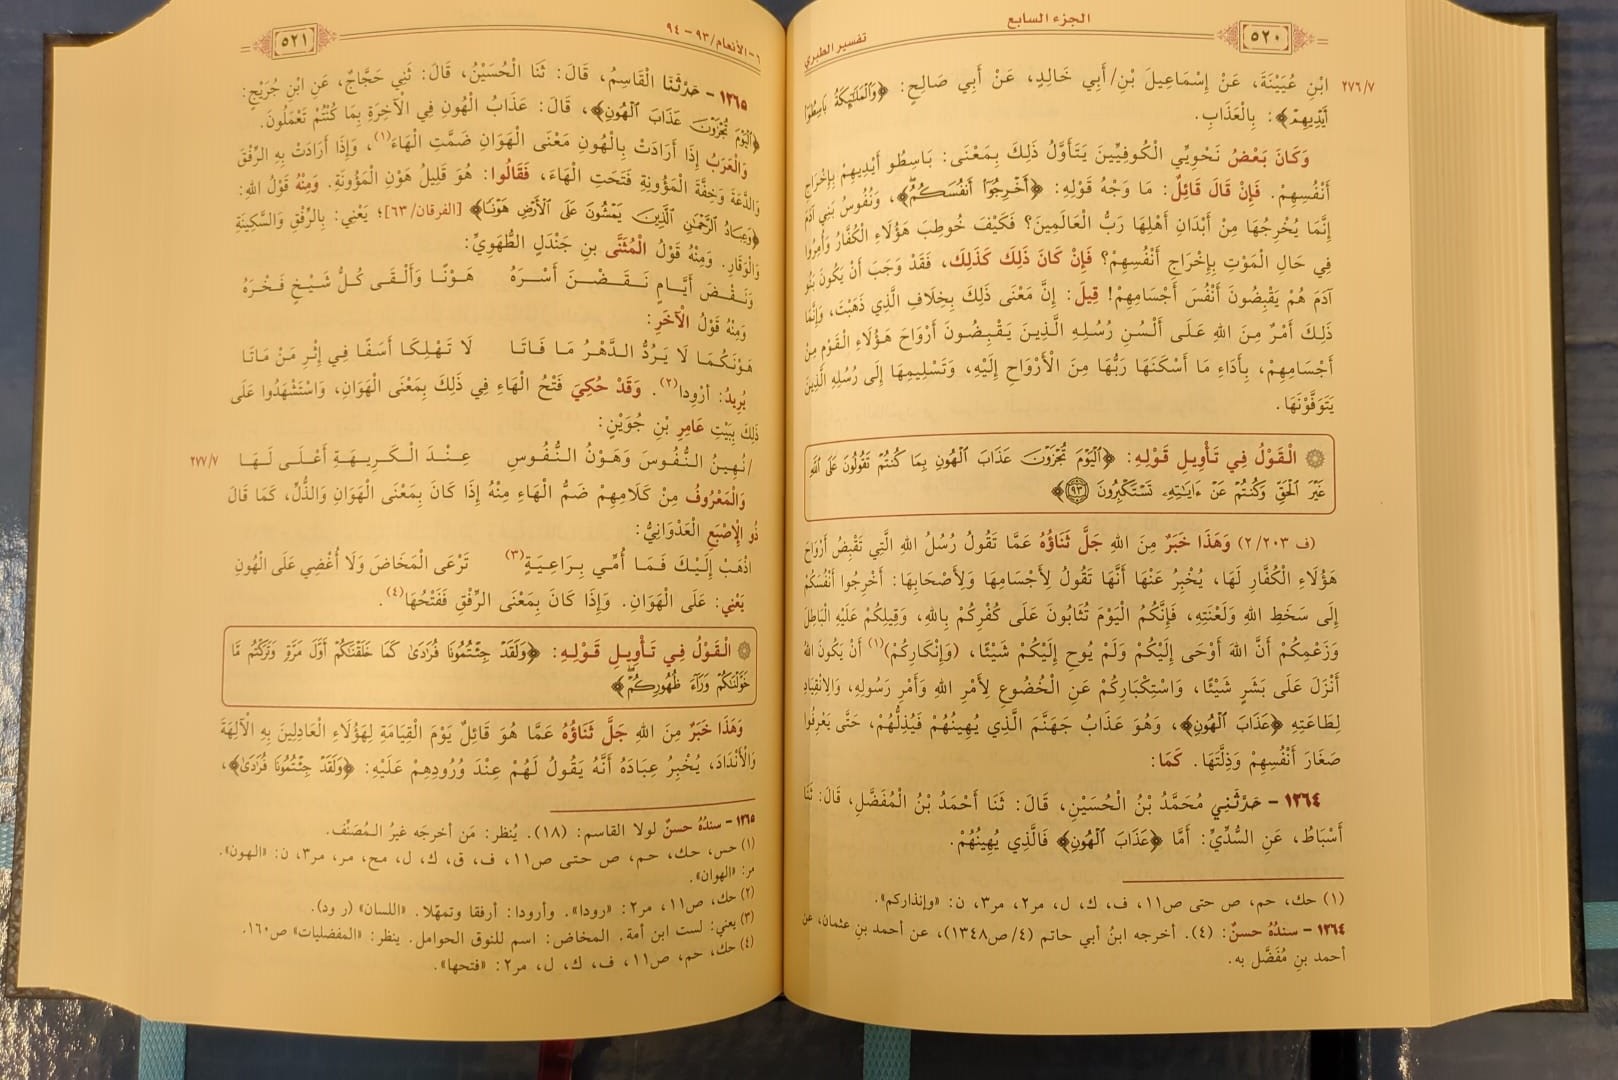 الجزء السابع
٥٢٠
تفسير الطبري
٢٧٦/٧
ابْنِ عُيَيْنَةَ، عَنْ إِسْمَاعِيلَ بْنِ/أَبِي خَالِدٍ، عَنْ أَبِي صَالِحٍ: ﴿وَالْمَلَائِكَةُ بَاسِطُوا
أَيْدِيهِمْ﴾: بِالْعَذَابِ.
وَكَانَ بَعْضُ نَحْوِيِّي الْكُوفِيِّينَ يَتَأَوَّلُ ذَلِكَ بِمَعْنَى: بَاسِطُو أَيْدِيهِمْ بِإِخْرَاجِ
أَنْفُسِهِمْ. فَإِنْ قَالَ قَائِلٌ: مَا وَجْهُ قَوْلِهِ: ﴿أَخْرِجُوا أَنْفُسَكُمُ﴾، وَنُفُوسُ بَنِي آدَمَ
إِنَّمَا يُخْرِجُهَا مِنْ أَبْدَانِ أَهْلِهَا رَبُّ الْعَالَمِينَ؟ فَكَيْفَ خُوطِبَ هَؤُلَاءِ الْكُفَّارُ وَأُمِرُوا
فِي حَالِ الْمَوْتِ بِإِخْرَاجِ أَنْفُسِهِمْ؟ فَإِنْ كَانَ ذَلِكَ كَذَلِكَ، فَقَدْ وَجَبَ أَنْ يَكُونَ بَنُو
آدَمَ هُمْ يَقْبِضُونَ أَنْفُسَ أَجْسَامِهِمْ! قِيلَ: إِنَّ مَعْنَى ذَلِكَ بِخِلَافِ الَّذِي ذَهَبْتَ، وَإِنَّمَا
ذَلِكَ أَمْرٌ مِنَ اللهِ عَلَى أَلْسُنِ رُسُلِهِ الَّذِينَ يَقْبِضُونَ أَرْوَاحَ هَؤُلَاءِ الْقَوْمِ مِنْ
أَجْسَامِهِمْ، بِأَدَاءِ مَا أَسْكَنَهَا رَبُّهَا مِنَ الْأَرْوَاحِ إِلَيْهِ، وَتَسْلِيمِهَا إِلَى رُسُلِهِ الَّذِينَ
يَتَوَفَّوْنَهَا.
الْقَوْلُ فِي تَأْوِيلِ قَوْلِهِ: ﴿الْيَوْمَ تُجْزَوْنَ عَذَابَ الْهُونِ بِمَا كُنْتُمْ تَقُولُونَ عَلَى اللهِ
غَيْرَ الْحَقِّ وَكُنْتُمْ عَنْ ءَايَاتِهِ تَسْتَكْبِرُونَ ٩٣﴾
(ف ٢/٢٠٣) وَهَذَا خَبَرٌ مِنَ اللهِ جَلَّ ثَنَاؤُهُ عَمَّا تَقُولُ رُسُلُ اللهِ الَّتِي تَقْبِضُ أَرْوَاحَ
هَؤُلَاءِ الْكُفَّارِ لَهَا، يُخْبِرُ عَنْهَا أَنَّهَا تَقُولُ لِأَجْسَامِهَا وَلِأَصْحَابِهَا: أَخْرِجُوا أَنْفُسَكُمْ
إِلَى سَخَطِ اللهِ وَلَعْنَتِهِ، فَإِنَّكُمُ الْيَوْمَ تُثَابُونَ عَلَى كُفْرِكُمْ بِاللهِ، وَقِيلِكُمْ عَلَيْهِ الْبَاطِلَ
وَزَعْمِكُمْ أَنَّ اللهَ أَوْحَى إِلَيْكُمْ وَلَمْ يُوحِ إِلَيْكُمْ شَيْئًا، (وَإِنْكَارِكُمْ)(١) أَنْ يَكُونَ اللهُ
أَنْزَلَ عَلَى بَشَرٍ شَيْئًا، وَاسْتِكْبَارِكُمْ عَنِ الْخُضُوعِ لِأَمْرِ اللهِ وَأَمْرِ رَسُولِهِ، وَالِانْقِيَادِ
لِطَاعَتِهِ ﴿عَذَابَ الْهُونِ﴾، وَهُوَ عَذَابُ جَهَنَّمَ الَّذِي يُهِينُهُمْ فَيُذِلُّهُمْ، حَتَّى يَعْرِفُوا
صَغَارَ أَنْفُسِهِمْ وَذِلَّتَهَا. كَمَا:
١٢٦٤ - حَدَّثَنِي مُحَمَّدُ بْنُ الْحُسَيْنِ، قَالَ: ثَنَا أَحْمَدُ بْنُ الْمُفَضَّلِ، قَالَ: ثَنَا
أَسْبَاطُ، عَنِ السُّدِّيِّ: أَمَّا ﴿عَذَابَ الْهُونِ﴾ فَالَّذِي يُهِينُهُمْ.
(١) حك، حم، ص حتى ص١١، ف، ك، ل، مر٢، مر٣، ن: «وإنذاركم».
١٢٦٤ - سندُهُ حسنٌ: (٤). أخرجه ابنُ أبي حاتم (٤/ص١٣٤٨)، عن أحمد بنِ عثمان، عن
أحمد بنِ مُفَضَّل به.
٦-الأنعام/٩٣ - ٩٤
٥٢١
١٢٦٥ - حَدَّثَنَا الْقَاسِمُ، قَالَ: ثَنَا الْحُسَيْنُ، قَالَ: ثَنِي حَجَّاجٌ، عَنِ ابْنِ جُرَيْجٍ:
﴿الْيَوْمَ تُجْزَوْنَ عَذَابَ الْهُونِ﴾، قَالَ: عَذَابُ الْهُونِ فِي الْآخِرَةِ بِمَا كُنْتُمْ تَعْمَلُونَ.
وَالْعَرَبُ إِذَا أَرَادَتْ بِالْهُونِ مَعْنَى الْهَوَانِ ضَمَّتِ الْهَاءَ(١)، وَإِذَا أَرَادَتْ بِهِ الرِّفْقَ
وَالدَّعَةَ وَخِفَّةَ الْمَؤُونَةِ فَتَحَتِ الْهَاءَ، فَقَالُوا: هُوَ قَلِيلُ هَوْنِ الْمَؤُونَةِ. وَمِنْهُ قَوْلُ اللهِ:
﴿وَعِبَادُ الرَّحْمَنِ الَّذِينَ يَمْشُونَ عَلَى الْأَرْضِ هَوْنًا﴾ [الفرقان/٦٣]؛ يَعْنِي: بِالرِّفْقِ وَالسَّكِينَةِ
وَالْوَقَارِ. وَمِنْهُ قَوْلُ الْمُثَنَّى بنِ جَنْدَلٍ الطُّهَوِيِّ:
وَنَقْضَ أَيَّامٍ نَقَضْنَ أَسْرَهُ هَوْنًا وَأَلْقَى كُلُّ شَيْخٍ فَخْرَهُ
وَمِنْهُ قَوْلُ الْآخَرِ:
هَوْنَكُمَا لَا يَرُدُّ الدَّهْرُ مَا فَاتَا لَا تَهْلِكَا أَسَفًا فِي إِثْرِ مَنْ مَاتَا
يُرِيدُ: أَرْوِدا(٢). وَقَدْ حُكِيَ فَتْحُ الْهَاءِ فِي ذَلِكَ بِمَعْنَى الْهَوَانِ، وَاسْتَشْهَدُوا عَلَى
ذَلِكَ بِبَيْتِ عَامِرِ بْنِ جُوَيْنٍ:
/نُهِينُ النُّفُوسَ وَهَوْنُ النُّفُوسِ عِنْدَ الْكَرِيهَةِ أَغْلَى لَهَا
٢٧٧/٧
وَالْمَعْرُوفُ مِنْ كَلَامِهِمْ ضَمُّ الْهَاءِ مِنْهُ إِذَا كَانَ بِمَعْنَى الْهَوَانِ وَالذُّلِّ، كَمَا قَالَ
ذُو الْإِصْبَعِ الْعَدْوَانِيُّ:
اذْهَبْ إِلَيْكَ فَمَا أُمِّي بِرَاعِيَةٍ(٣) تَرْعَى الْمَخَاضَ وَلَا أُغْضِي عَلَى الْهُونِ
يَعْنِي: عَلَى الْهَوَانِ. وَإِذَا كَانَ بِمَعْنَى الرِّفْقِ فَفَتْحُهَا(٤).
الْقَوْلُ فِي تَأْوِيلِ قَوْلِهِ: ﴿وَلَقَدْ جِئْتُمُونَا فُرَادَى كَمَا خَلَقْنَاكُمْ أَوَّلَ مَرَّةٍ وَتَرَكْتُمْ مَّا
خَوَّلْنَاكُمْ وَرَاءَ ظُهُورِكُمْ﴾
وَهَذَا خَبَرٌ مِنَ اللهِ جَلَّ ثَنَاؤُهُ عَمَّا هُوَ قَائِلٌ يَوْمَ الْقِيَامَةِ لِهَؤُلَاءِ الْعَادِلِينَ بِهِ الْآلِهَةَ
وَالْأَنْدَادَ، يُخْبِرُ عِبَادَهُ أَنَّهُ يَقُولُ لَهُمْ عِنْدَ وُرُودِهِمْ عَلَيْهِ: ﴿وَلَقَدْ جِئْتُمُونَا فُرَادَى﴾،
١٢٦٥ - سندُهُ حسنٌ لولا القاسم: (١٨). يُنظر: مَن أخرجَه غيرُ المُصَنِّف.
(١) حس، حك، حم، ص حتى ص١١، ف، ق، ك، ل، مح، مر، مر٣، ن: «الهون».
مز: «الهوان».
(٢) حك، ص١١، مر٢: «رودا». وأرودا: أرفقا وتمهّلا. «اللسان» (ر ود).
(٣) يعني: لست ابن أمة. المخاض: اسم للنوق الحوامل. ينظر: «المفضليات» ص١٦٠.
(٤) حك، حم، ص١١، ف، ك، ل، مر٢: «فتحها».